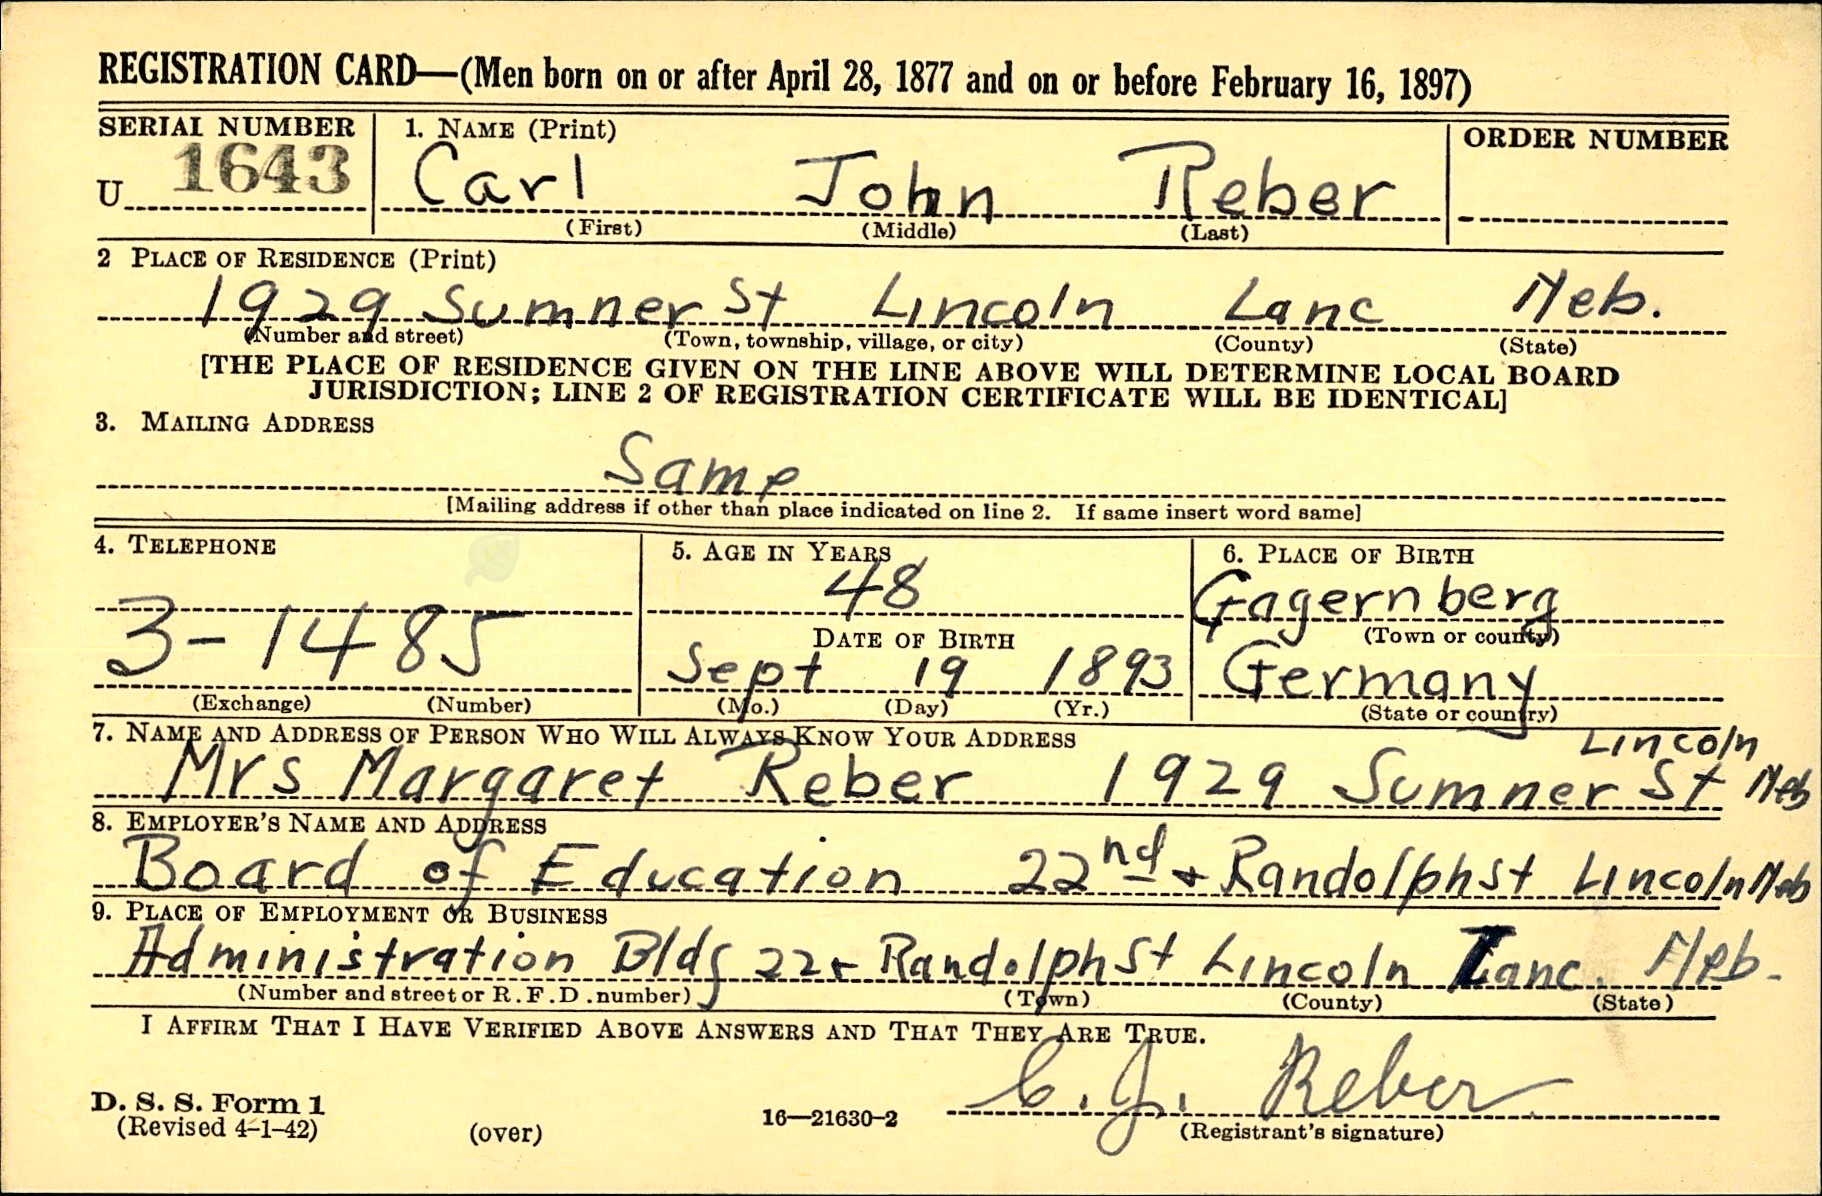 REGISTRATION CARD—(Men born on or after April 28, 1877 and on or before February 16, 1897)
SERIAL NUMBER 1. NAME (Print) ORDER NUMBER
U 1643 Carl John Reber
(First) (Middle) (Last)
2 PLACE OF RESIDENCE (Print)
1929 Sumner St Lincoln Lanc Neb.
(Number and street) (Town, township, village, or city) (County) (State)
[THE PLACE OF RESIDENCE GIVEN ON THE LINE ABOVE WILL DETERMINE LOCAL BOARD
JURISDICTION; LINE 2 OF REGISTRATION CERTIFICATE WILL BE IDENTICAL]
3. MAILING ADDRESS
Same
[Mailing address if other than place indicated on line 2. If same insert word same]
4. TELEPHONE 5. AGE IN YEARS 6. PLACE OF BIRTH
48 Gagernberg
DATE OF BIRTH (Town or county)
3-1485 Sept 19 1893 Germany
(Exchange) (Number) (Mo.) (Day) (Yr.) (State or country)
7. NAME AND ADDRESS OF PERSON WHO WILL ALWAYS KNOW YOUR ADDRESS
Mrs Margaret Reber 1929 Sumner St Lincoln Neb
8. EMPLOYER'S NAME AND ADDRESS
Board of Education 22nd + Randolph St Lincoln Neb
9. PLACE OF EMPLOYMENT OR BUSINESS
Administration Bldg 22 + Randolph St Lincoln Lanc. Neb.
(Number and street or R. F. D. number) (Town) (County) (State)
I AFFIRM THAT I HAVE VERIFIED ABOVE ANSWERS AND THAT THEY ARE TRUE.
C. J. Reber
D. S. S. Form 1
(Revised 4-1-42) (over) 16—21630-2 (Registrant's signature)